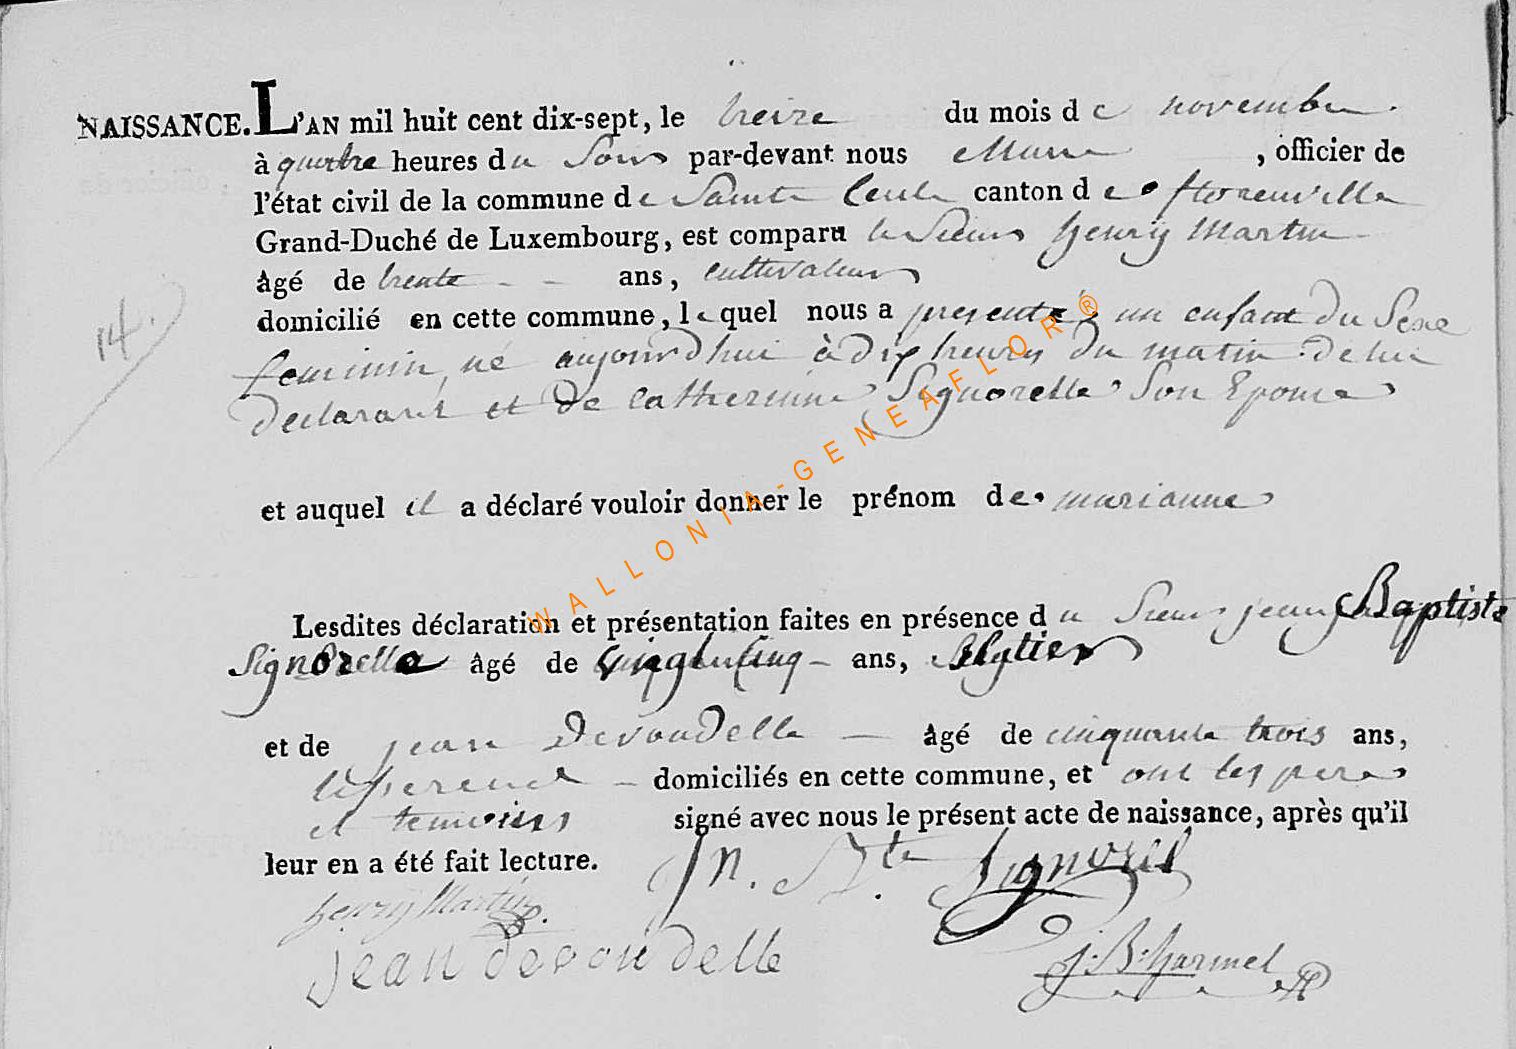 NAISSANCE. L'AN mil huit cent dix-sept, le treize du mois de novembre
à quatre heures du Soir par-devant nous Maire, officier de
l'état civil de la commune de Sainte Cecile canton de florenville
Grand-Duché de Luxembourg, est comparu le Sieur henry Martin
âgé de trente ans, cultivateur
domicilié en cette commune, lequel nous a presenté un enfant du Sexe
feminin, né aujourd'hui à dix heures du matin de lui
declarant et de Catherinne Signorelle Son Epouse
14.
et auquel il a déclaré vouloir donner le prénom de marianne
Lesdites déclaration et présentation faites en présence du Sieur jean Baptiste
Signorelle âgé de vingt cinq ans,
et de jean Devaudelle âgé de cinquante trois ans,
domiciliés en cette commune, et ont les pere
et temoins signé avec nous le présent acte de naissance, après qu'il
leur en a été fait lecture.
Jn. Bte. Signorel
henry Martin
jean devoudelle
J. B. harmel
WALLONIA-GENEAFLOR®